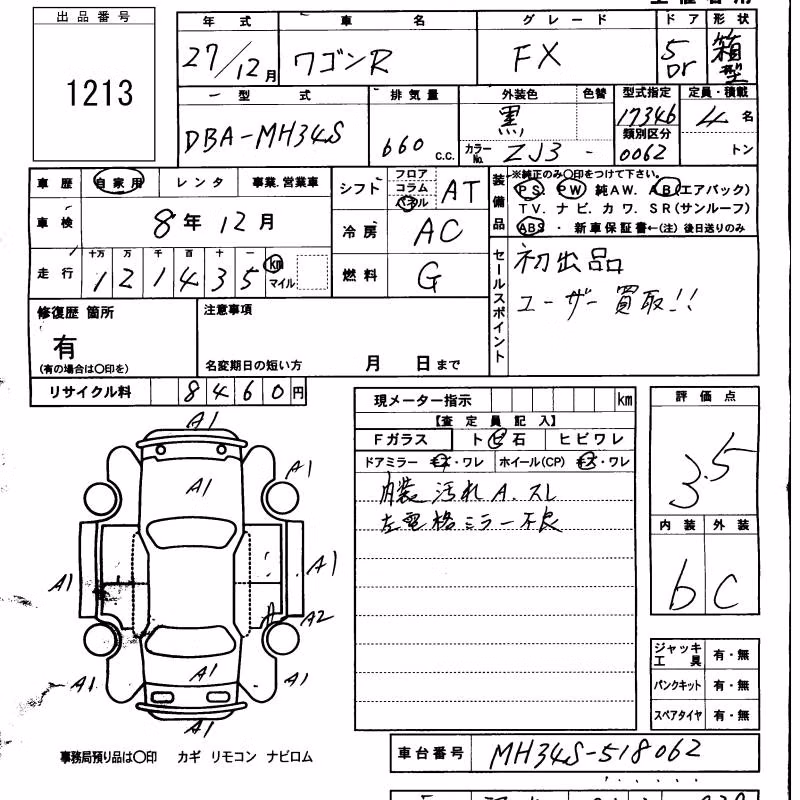 出品番号
1213
年式 車名 グレード ドア 形状
27/12月 ワゴンR FX 5Dr 箱型
型式 排気量 外装色 色替 型式指定 定員・積載
DBA-MH34S 660 c.c. 黒 17346 4名
カラーNo. ZJ3 - 類別区分 0062 トン
車歴 自家用 レンタ 事業.営業車
シフト フロア コラム パネル AT
装備品 ※純正のみ〇印をつけて下さい。
PS PW 純AW. AB(エアバック)
TV. ナビ. カワ. SR(サンルーフ)
ABS ・ 新車保証書←(注) 後日送りのみ
車検 8年12月
冷房 AC
走行 十万 万 千 百 十 一
121435 km マイル
燃料 G
セールスポイント
初出品
ユーザー買取!!
修復歴 箇所
有
(有の場合は〇印を)
注意事項
名変期日の短い方 月 日まで
リサイクル料 8460円
現メーター指示 km
【査定員記入】
Fガラス ト ビ 石 ヒビワレ
ドアミラー キズ・ワレ ホイール(CP) キズ・ワレ
内装汚れ A.スレ
左電格ミラー不良
評価点
3.5
内装 外装
b C
A1
A1
A1
A1
A1
A
A2
A1
A1
A1
A1
ジャッキ工具 有・無
パンクキット 有・無
スペアタイヤ 有・無
事務局預り品は〇印 カギ リモコン ナビロム
車台番号 MH34S-518062